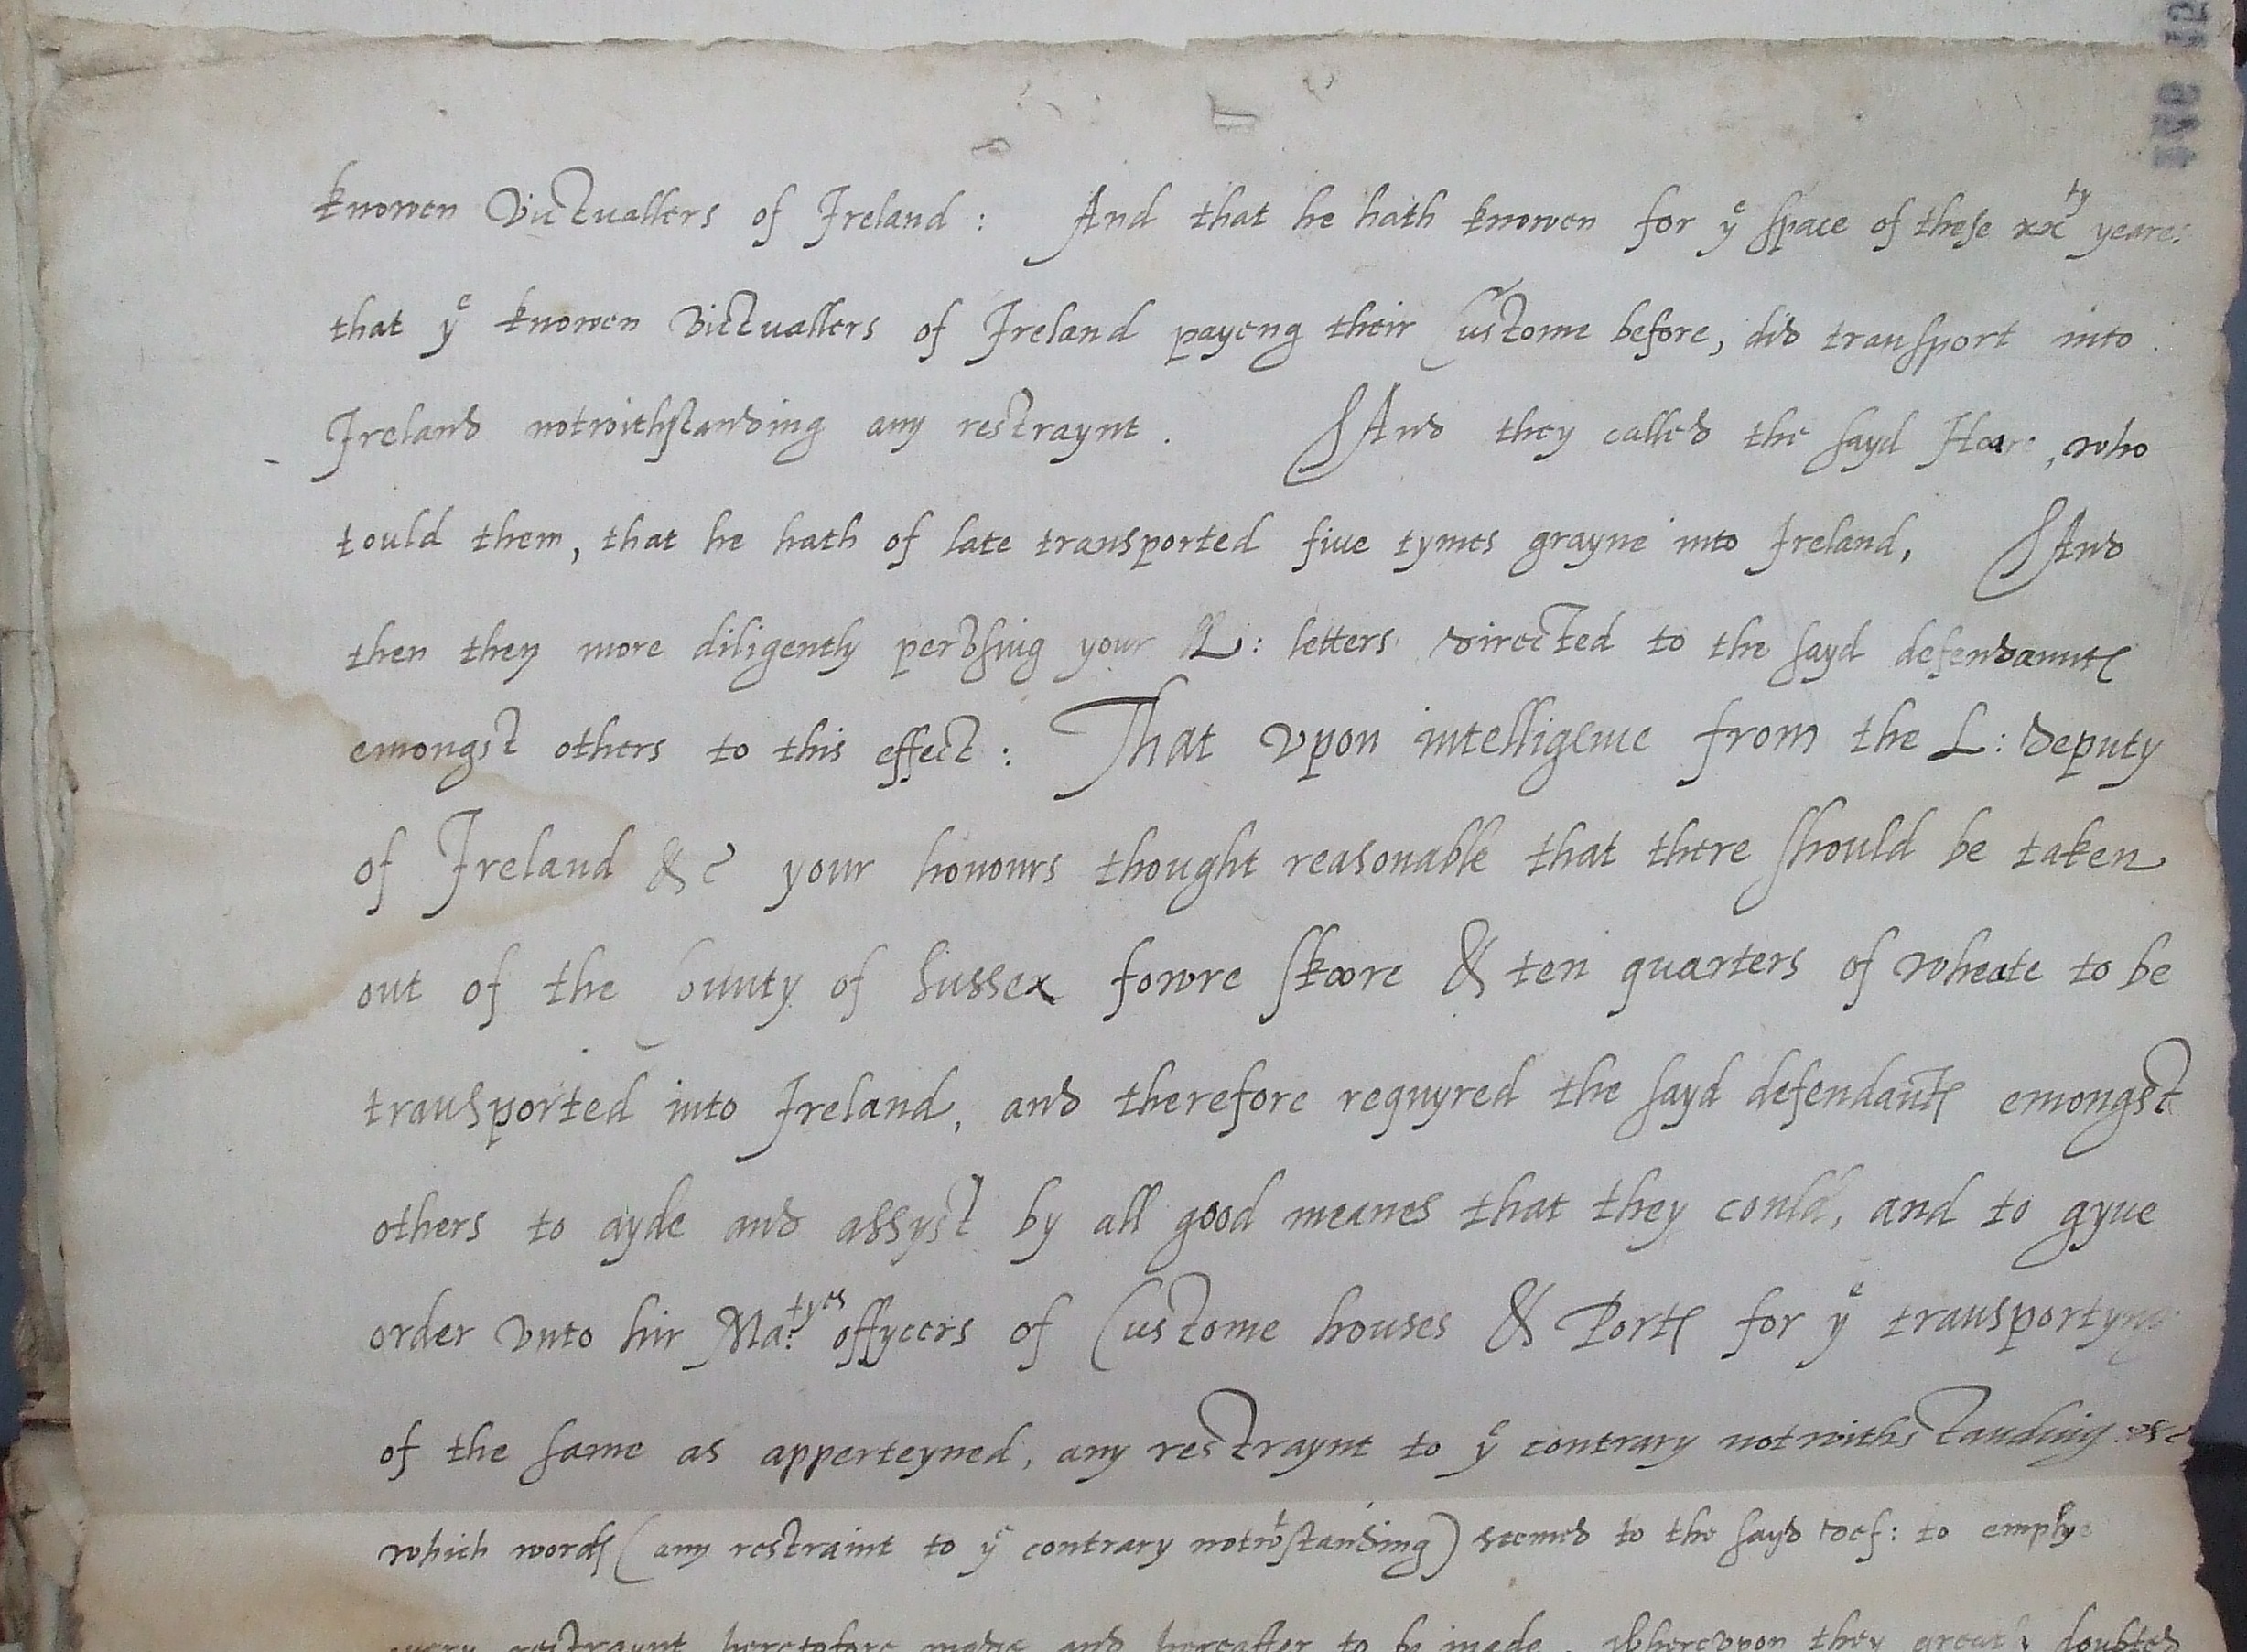 knowen Victuallers of Ireland : And that he hath knowen for yᵉ space of these xxᵗʸ yeares
that yᵉ knowen Victuallers of Ireland payeng their Custome before, did transport into
Ireland notwithstanding any restraynt . And they called the sayd Hoare, who
tould them, that he hath of late transported five tymes grayne into Ireland, And
then they more diligently pervsing your L: letters directed to the sayd defendauntes
emongst others to this effect : That vpon intelligence from the L: deputy
of Ireland &c your honours thought reasonable that there should be taken
out of the County of Sussex fowre skore & ten quarters of wheate to be
transported into Ireland, and therefore requyred the sayd defendantes emongst
others to ayde and assyst by all good meanes that they could, and to gyue
order vnto hir Ma:ᵗʸᵉˢ offycers of Custome houses & Portes for yᵉ transportyng
of the same as apperteyned, any restraynt to yᵉ contrary notwithstanding &c
which wordes (any restraint to yᵉ contrary notwᵗstanding) seemed to the sayd def: to emplye
every restraynt heretofore made and hereafter to be made. Wherevpon they greatly doubted